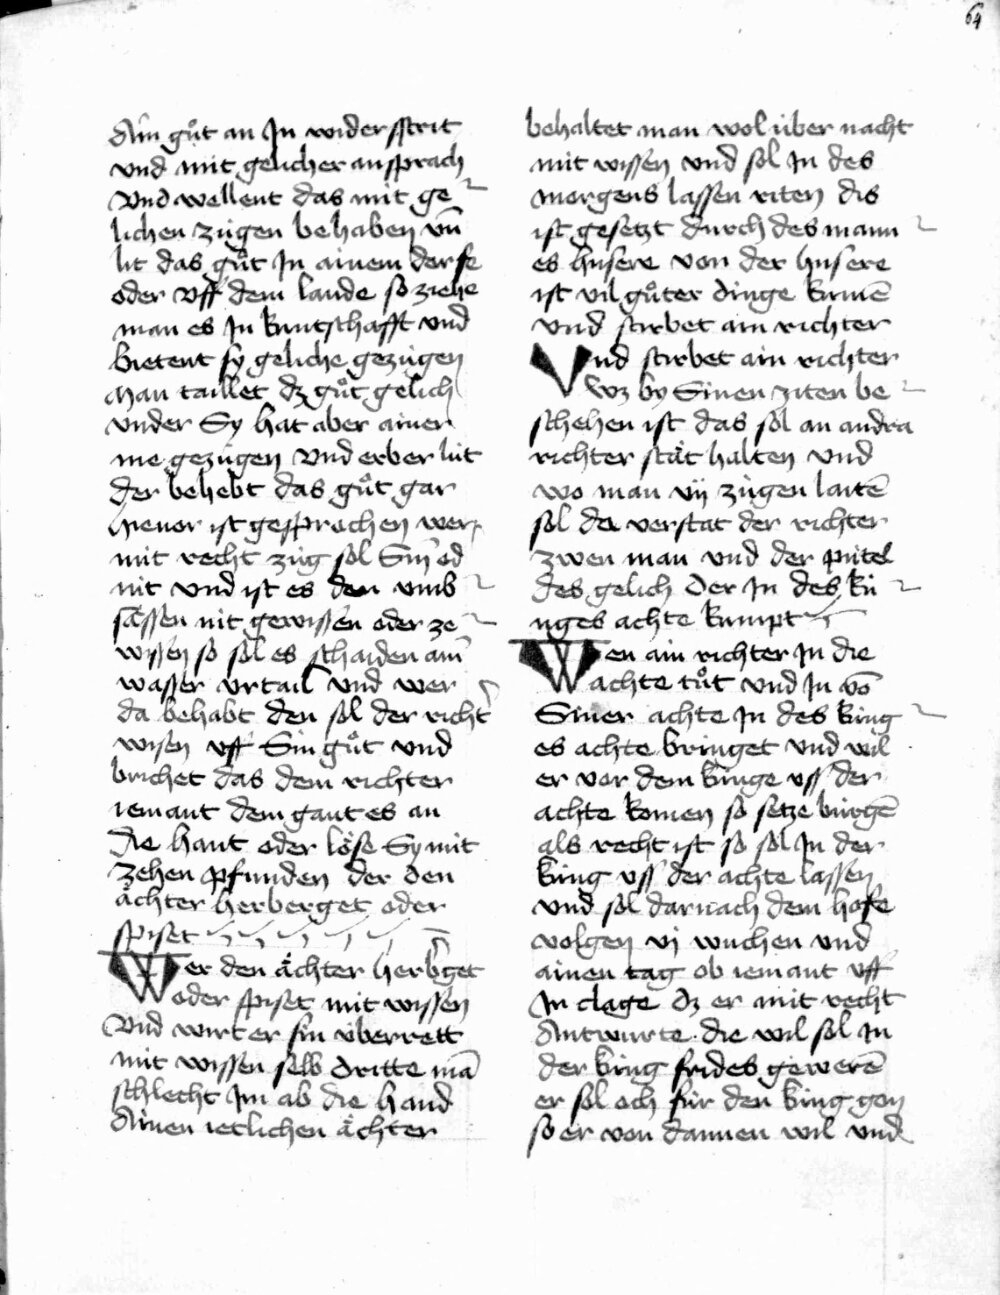 64
Ain guͦt an In widersstrit
vnd mit gelicher ansprach
Vnd wellent das mit ge
lichen zúgen behaben vn̄
lit das guͦt In ainem dorfe
oder vff dem lande so ziehe
man es In kuntschafft vnd
bietent sy geliche gezúgen
Man taillet dz guͦt gelich
vnder Sy Hat aber ainer
me gezúgen Vnd erber lút
der behebt das guͦt gar
Hieuor ist gesprochen wer
mit recht zúg sol Sin od
nit vnd ist es den vmb
sǎssen nit gewissen oder ze
wissen so sol es schaiden ain
wasser vrtail vnd wer
da behabt den sol der richt
wisen vff Sin guͦt vnd
brichet das dem richter
iemant dem gant es an
Die hant oder lőse Sy mit
zehen pfunden der den
ǎchter herberget oder
spiset
Wer den ǎchter herbget
oder spiset mit wissen
Vnd wirt er sin úberrett
mit wissen selb dritte mā
schlecht Im ab die hand
Ainen ietlichen ǎchter
behaltet man wol úber nacht
mit wissen vnd sol In des
morgens lassen riten dis
ist gesetzt durch des mann
es husere von der husere
ist vil guͦter dinge kumē
vnd stirbet ain richter
Vnd stirbet ain richter
Wz by Sinen ziten be
schehen ist das sol an andra
richter stǎt halten vnd
wo man vij zúgen laitē
sol da verstat der richter
zwen man vnd der pútel
des gelich Der In des kú
nges achte kumpt
Wen ain richter In die
achte tuͦt vnd In vō
Siner achte In des kúng
es achte bringet vnd wil
er vor dem kúnge vss der
achte komen so setze búrgē
als recht ist so sol In der
kúng vss der achte lassen
vnd sol darnach dem hofe
volgen vj wuchen vnd
ainen tag ob iemant vff
In clage dz er mit recht
Antwurte die wil sol In
der kúng frides gewerē
er sol och fúr den kúng gon
so er von dannen wil vnd